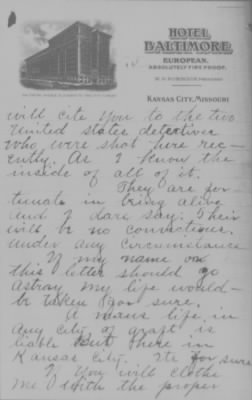 HOTEL
BALTIMORE
EUROPEAN.
ABSOLUTELY FIRE PROOF.
KANSAS CITY, MISSOURI
will cite you to the two
United states detectives
who were shot here rec-
ently. As I know the
inside of all of it.
They are for
tunate in being alive
and I dare say. Their
will be no convictions.
under any Circumstance
If my name or
this letter should go
astray my life would
be taken for sure.
A mans life, in
any City of graft is
liable But here in
Kansas City. Its for sure
If you will clothe
me with the proper